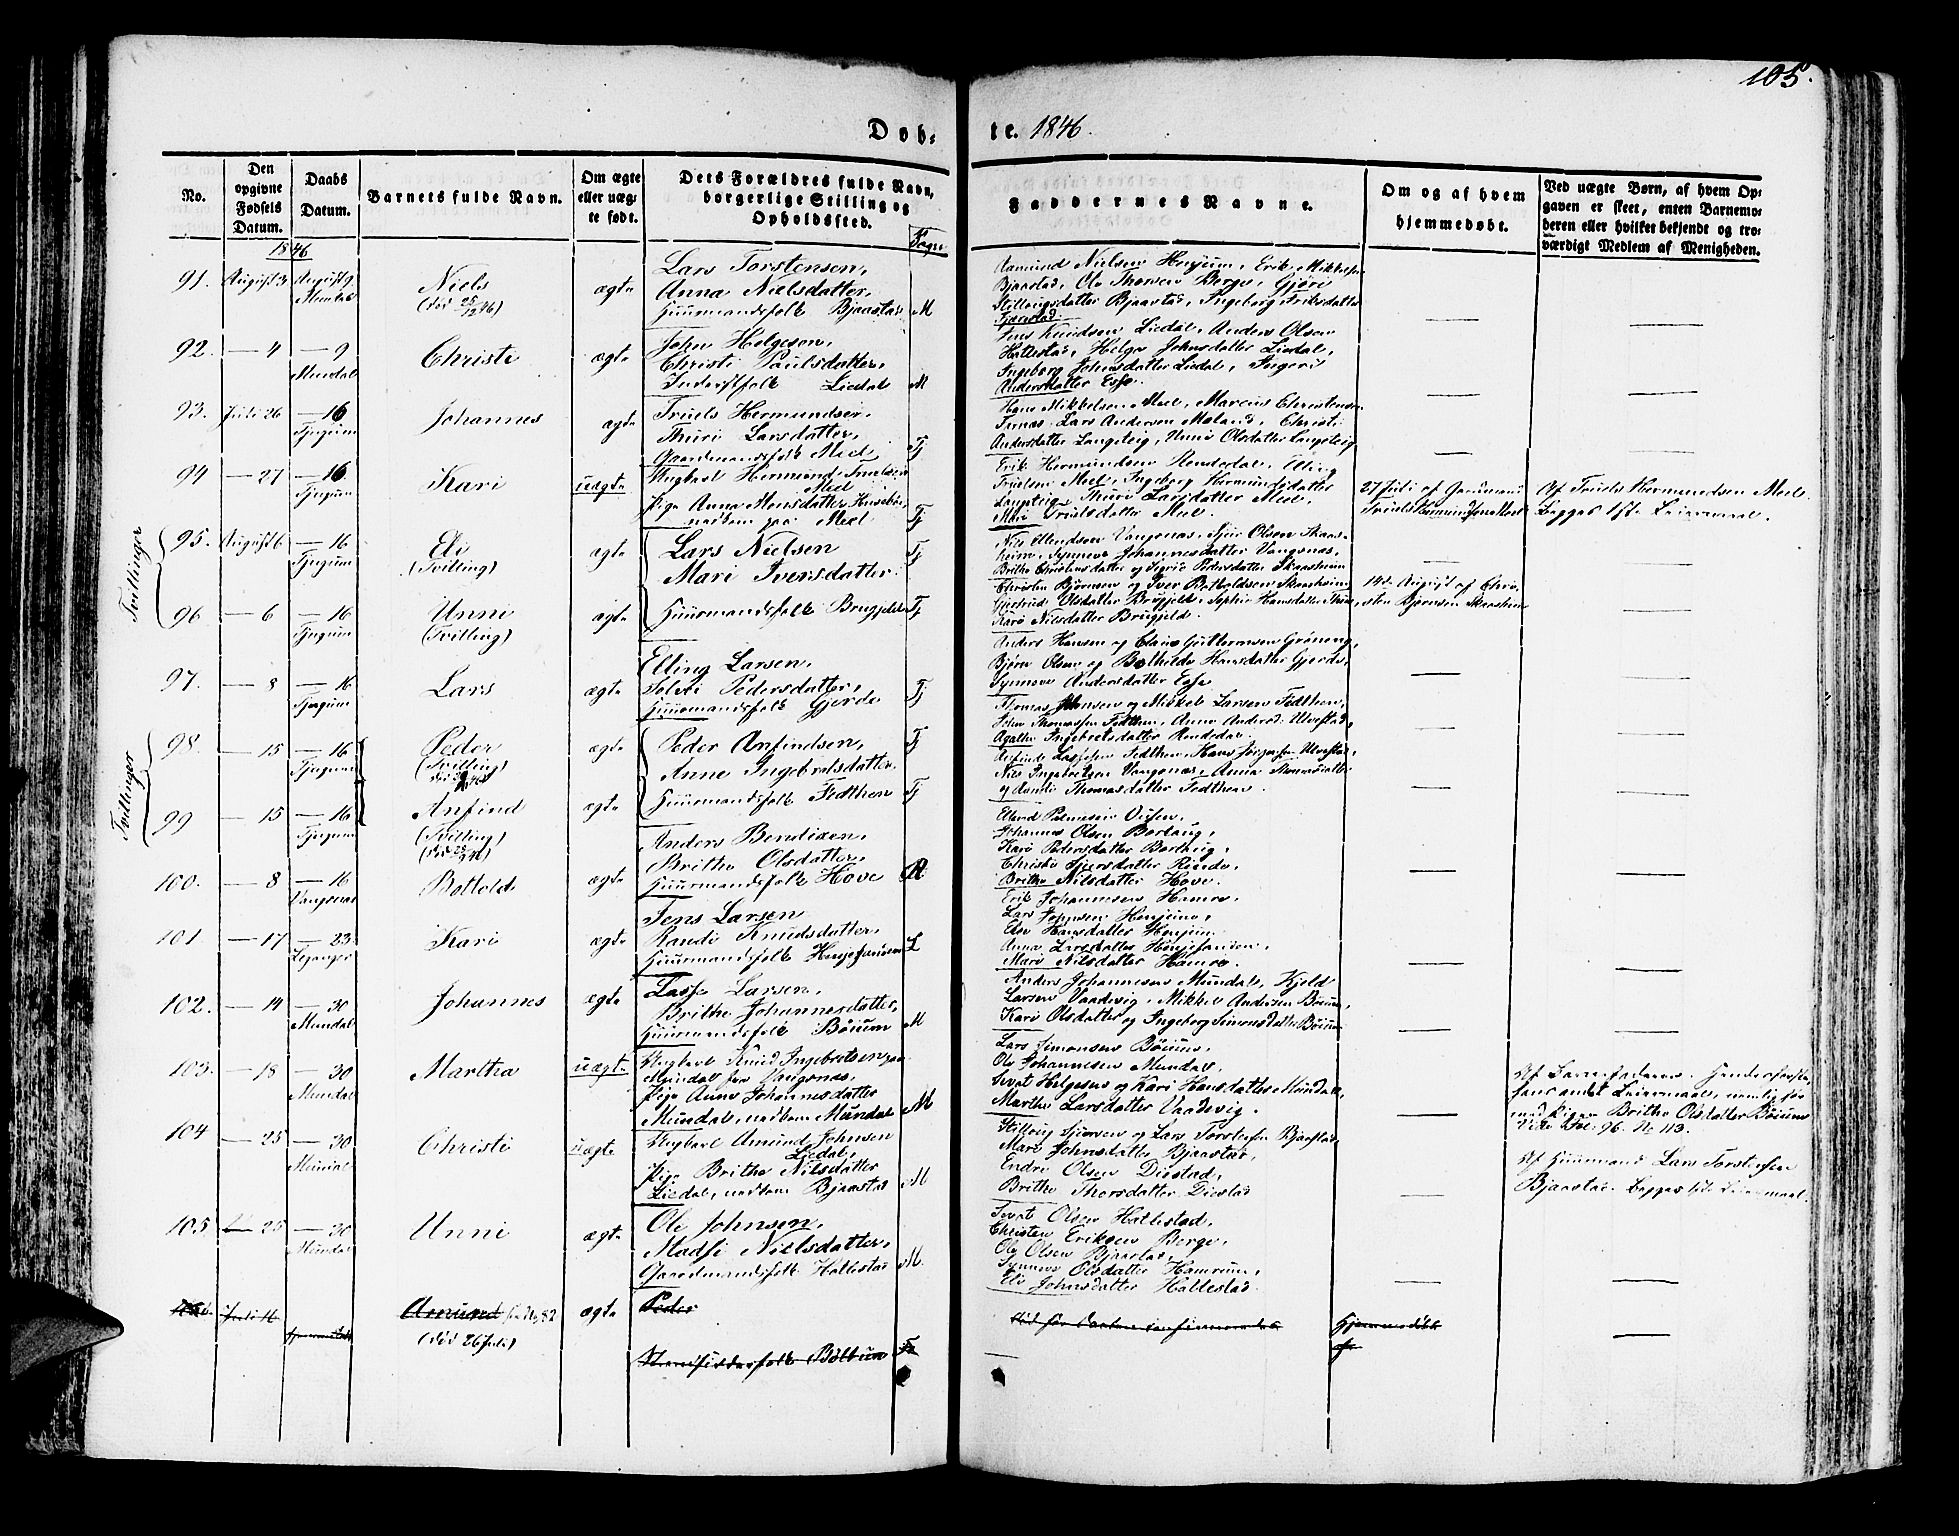 105.
Døb-
te. 1846.
No.
Den opgivne Fødsels Datum.
Daabs Datum.
Barnets fulde Navn.
Om ægte eller uæg-te født.
Dets Forældres fulde Navn, borgerlige Stilling og Opholdssted.
Sogn
Faddernes Navne.
Om og af hvem hjemmedøbt.
Ved uægte Børn, af hvem Op-
gaven er skeet, enten Barnemo-
deren eller hvilket bekjendt og tro-
værdigt Medlem af Menigheden.
1846
91. August 3 August 9 Mundal Niels ægte
Lars Torstensen,
Anna Nielsdatter,
Huusmandsfolk Bjaastad M
Aamund Nielsen Henjum, Erik Mikkelsen
Bjaastad, Ole Thorsen Berge, Gjøri
Stillougsdatter Bjaastad, Ingeborg
92. — 4 — 9 Mundal Christi ægte
John Helgesen,
Christi Paulsdatter,
Inderstfolk Liedal M
Jens Knudsen Liedal, Anders Olsen
Hallestad, Helga Johnsdatter Liedal,
Ingeborg Johnsdatter Liedal, Ingeri
Andersdatter Esse.
93. Juli 26 — 16 Tjugum Johannes ægte
Truels Hermundsen,
Thuri Larsdatter,
Gaardmandsfolk Meel Tj
Hans Mikkelsen Meel, Marcus Christensen
Lars Andersen Meland, Christi
Andersdatter Langeteig, Unni Olsdatter Langeteig
94 — 27 — 16 Tjugum Kari uægte
Ungkarl Hermund Truelsen
Meel
Pige Anna Monsdatter
nadkom paa Meel Tj
Erik Hermundsen Rendedal, Elling
Truelsen Meel, Ingeborg Hermundsdatter
Langeteig, Thuri Larsdatter Meel,
Mari Truelsdatter Meel.
27 Juli af Gaardmand
Truels Hermundsen Meel
Af Truels Hermundsen Meel
Begges 1ste Leiermaal.
Tvillinger
95. August 6 — 16 Tjugum Eli (Tvilling) ægte
Lars Nielsen
Mari Iversdatter Tj
Nils Ellendsen Vangsnæs, Sjur Olsen Skaas-
heim, Synneva Johannesdatter Vangsnæs,
Brithe Christensdatter og Sigrid Pedersdatter Skaasheim
96 — 6 — 16 Tjugum Unni (Tvilling) ægte
Huusmandsfolk Brugjeld Tj
Christen Bjørnsen og Iver Botholdsen Skaasheim
Gjertrud Olsdatter Brugjeld, Sophie Hansdatter
Kari Nilsdatter Brugjeld.
14d. August af Chri-
sten Bjørnsen Skaasheim
97. — 8 — 16 Tjugum Lars ægte
Elling Larsen,
Pedersdatter,
Huusmandsfolk Gjerde Tj
Anders Hansen og Claus Guttormsen Grøneng,
Bjørn Olsen og Bothilde Hansdatter Gjerde,
Synneve Andersdatter Esse
Tvillinger
98. — 15 — 16 Tjugum Peder (Tvilling) ægte
Peder Anfindsen,
Anne Ingebretsdatter, Tj
Thomas Johnsen og Mikkel Larsen Fedthen,
John Thomassen Fedthen, Anna Andersd. Ulvestad,
Agathe Ingebretsdatter Rendedal.
99 — 15 — 16 Tjugum Anfind (Tvilling) ægte
Huusmandsfolk Fedthen Tj
Anfind Lassesen Fedthen, Hans Jørgensen Ulvestad,
Nils Ingebretsen Vangsnæs, Anna
og Randi Thomasdatter Fedthen.
100. — 8 — 16 Vangsnæs Bottold ægte
Anders Bendixen,
Brithe Olsdatter,
Huusmandsfolk Hove
Johannes Olsen Bortnig,
Kari Pedersdatter Bortnig,
Christi Sjursdatter Rinde,
Brithe Nilsdatter Hove.
101. — 17 — 23. Leganger Kari ægte
Jens Larsen
Randi Knudsdatter,
Huusmandsfolk L
Erik Johannesen Hamre,
Lars Henjum,
Else Hansdatter Henjum
Anna Larsdatter
Mari Nilsdatter Hamre.
102. — 14 — 30 Mundal Johannes ægte
Lasse Larsen,
Brithe Johannesdatter,
Huusmandsfolk Böium M
Anders Johannesen Mundal, Kjeld
Larsen Vaadsvig, Mikkel Andersen Böium,
Kari Olsdatter og Ingeborg Simonsdatter Böium
103. — 18 — 30 Mundal Martha uægte
Ungkarl Knud Ingebretsen
Mundal fra Vangsnæs.
Pige Anna Johannesdatter
Mundal, nadkom Mundal M
Lars Simonsen Böium,
Ole Johannesen Mundal,
Sevat Helgesen og Kari Hansdatter Mundal,
Marthe Larsdatter Vaadsvig.
Af Barnefaderen.
andet Leiermaal, nemlig før
med Pigen Brithe Olsdatter Böium
vide Fol: 96. No 113.
104 — 25 — 30 Mundal Christi uægte
Ungkarl Amund Johnsen
Liedal,
Pige Brithe Nilsdatter
Liedal, nadkom Bjaastad M
Stilloug Sjursen og Lars Torstensen Bjaastad,
Mari Johnsdatter Bjaastad,
Endre Olsen Distad,
Brithe Thorsdatter Distad
Af Huusmand Lars Torstensen
Bjaastad. Begges 1ste Leiermaal.
105 — 25 — 30 Mundal Unni ægte
Ole Johnsen,
Madsi Nielsdatter,
Gaardmandsfolk Hallestad M.
Sevat Olsen Hallestad,
Christen Eriksen Berge,
Ole Olsen Bjaastad,
Synneve Olsdatter Hamrum,
Eli Johnsdatter Hallestad
Juli 16 Amund No 82 (död 26 Juli) ægte
Peder
Strandsidderfolk Bölum
Hjemmedöbt
af